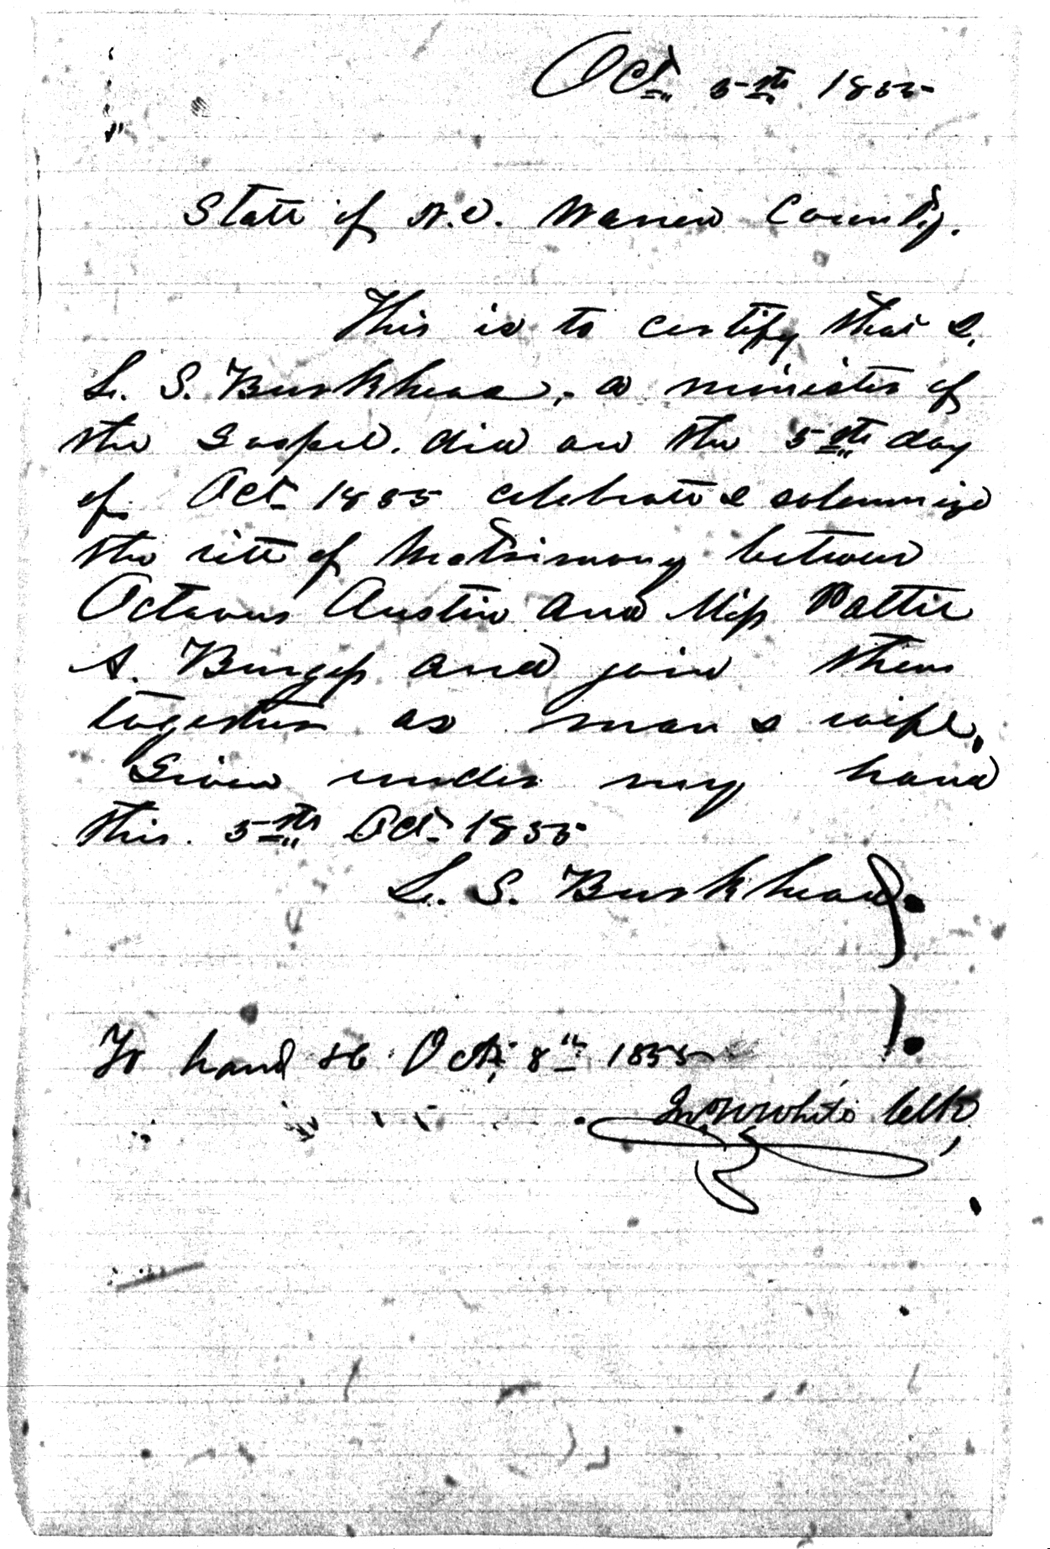 Oct. 5th 1855
State of N.C. Warren County.
This is to certify that I.
L. S. Burkhead, a minister of
the Gospel. did on the 5th day
of Oct 1855 celebrate & solemnize
the rite of Matrimony between
Octavus Austin and Miss Pattie
A. Burgess and join them
together as man & wife.
Given under my hand
this. 5th Oct 1855
L. S. Burkhead
To hand Oct. 8th 1855
Jno. W White Clk